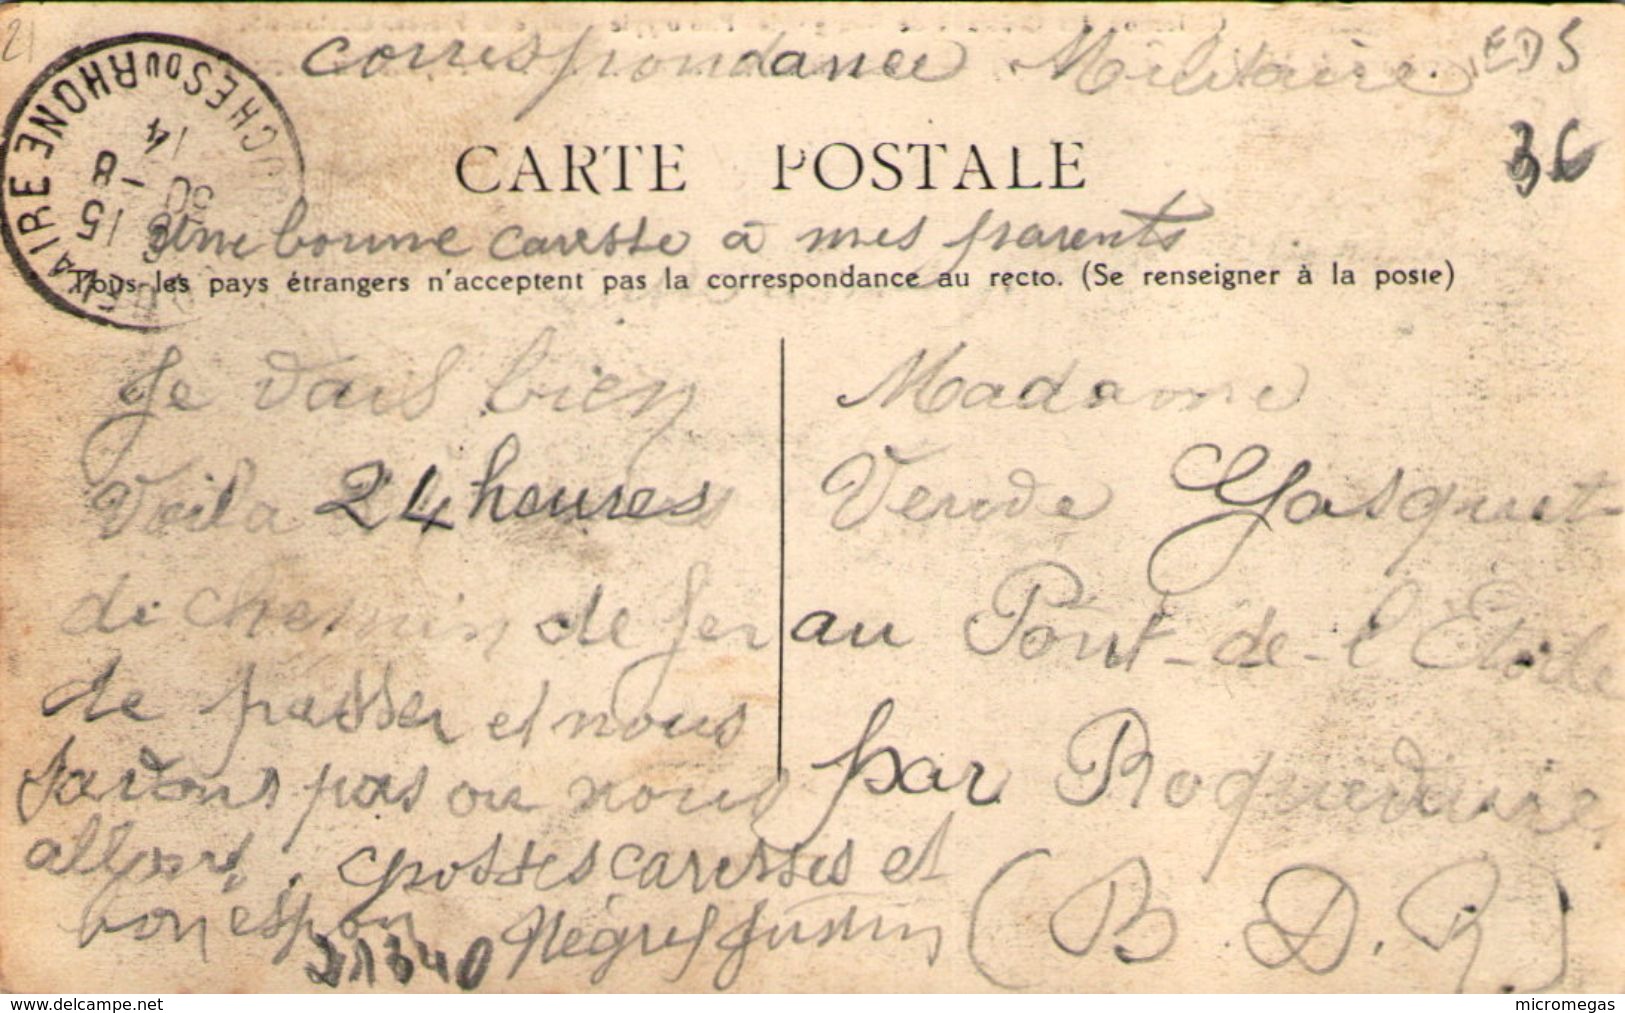 21
correspondance Militaire
EDS
3€
CARTE POSTALE
AIRE BOUCHES DU RHONE
15
30 - 8
14
Une bonne caresse à mes parents
Tous les pays étrangers n'acceptent pas la correspondance au recto. (Se renseigner à la poste)
Je vais bien
Voila 24 heures
de chemin de fer
de passer et nous
savons pas ou nous
allons. grosses caresses et
bon espoir Négrel Justin
21340
Madame
Veuve Gasquet
au Pont-de-l'Etoile
par Roquevaire
(B. D. R)
www.delcampe.net
micromegas